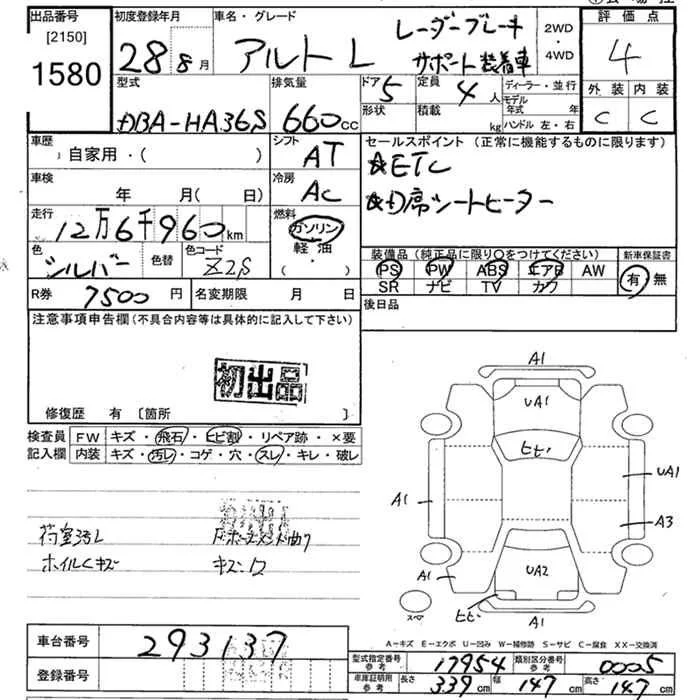 出品番号
[2150]
1580
初度登録年月
28年8月
車名・グレード
アルト L
レーダーブレーキ
サポート装着車
2WD
・
4WD
評価点
4
外装 内装
C C
型式
DBA-HA36S
排気量
660cc
ドア
5
形状
定員
4人
積載
kg
ディーラー・並行
モデル
年式 年
ハンドル 左・右
車歴
自家用・( )
シフト
AT
車検
年 月( 日)
冷房
AC
走行
12万6千960km
燃料
ガソリン
軽・油
・
色
シルバー
色替
色コード
Z2S
R券
7500円
名変期限 月 日
セールスポイント(正常に機能するものに限ります)
☆ETC
☆D席シートヒーター
装備品(純正品に限り○をつけてください)
PS PW ABS エアB AW
SR ナビ TV カワ
新車保証書
有・無
後日品
注意事項申告欄(不具合内容等は具体的に記入して下さい)
初出品
修復歴 有 [箇所 ]
検査員 FW キズ・飛石・ヒビ割・リペア跡・×要
記入欄 内装 キズ・汚レ・コゲ・穴・スレ・キレ・破レ
荷室汚レ
ホイルCキズ
A1
UA1
ヒビ
A1
UA1
A3
A1
UA2
ヒビ
A1
スペア
A-キズ E-エクボ U-凹み W-補修跡 S-サビ C-腐食 XX-交換済
車台番号
293137
登録番号
型式指定番号
参考
17954
類別区分番号
参考
0005
車庫証明用
参考
長さ 339cm 幅 147cm 高さ 147cm